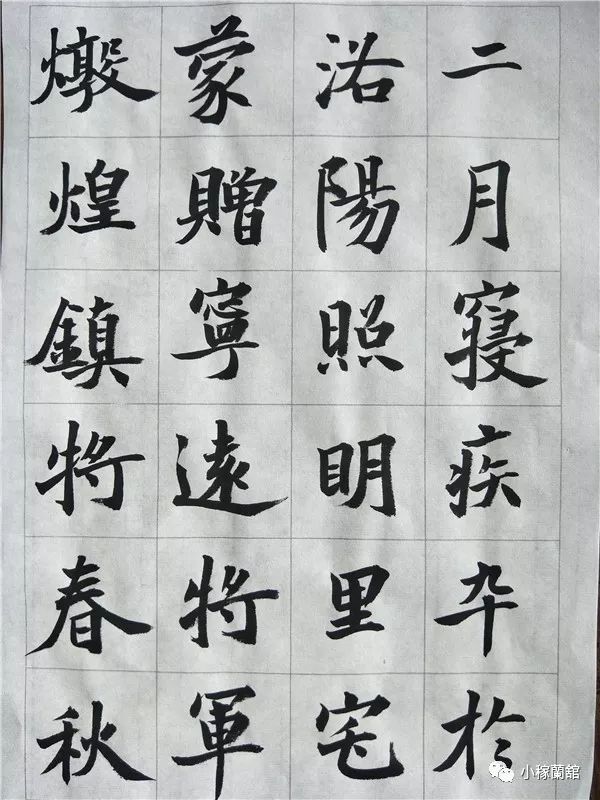 二月寢疾卆於
洛陽照眀里宅
蒙贈寧遠将軍
燉煌鎮将春秋
小稼蘭舘